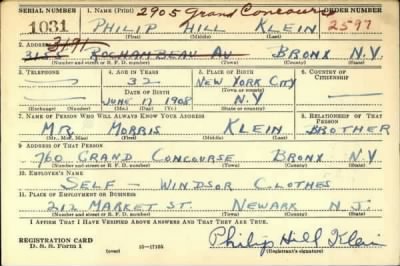 SERIAL NUMBER 1. NAME (Print) 2905 Grand Concourse ORDER NUMBER
1031 PHILIP HILL KLEIN 2597
(First) (Middle) (Last)
2. ADDRESS 3191
ROCHAMBEAU AV BRONX N.Y
(Number and street or R. F. D. number) (Town) (County) (State)
3. TELEPHONE 4. AGE IN YEARS 5. PLACE OF BIRTH 6. COUNTRY OF CITIZENSHIP
— 32 NEW YORK CITY
DATE OF BIRTH (Town or county)
— JUNE 17 1908 N.Y —
(Exchange) (Number) (Mo.) (Day) (Yr.) (State or country)
7. NAME OF PERSON WHO WILL ALWAYS KNOW YOUR ADDRESS 8. RELATIONSHIP OF THAT PERSON
MR. MORRIS KLEIN BROTHER
(Mr., Mrs., Miss) (First) (Middle) (Last)
9. ADDRESS OF THAT PERSON
760 GRAND CONCOURSE BRONX N.Y
(Number and street or R. F. D. number) (Town) (County) (State)
10. EMPLOYER'S NAME
SELF — WINDSOR CLOTHES
11. PLACE OF EMPLOYMENT OR BUSINESS
212 MARKET ST. NEWARK N J.
(Number and street or R. F. D. number) (Town) (County) (State)
I AFFIRM THAT I HAVE VERIFIED ABOVE ANSWERS AND THAT THEY ARE TRUE.
REGISTRATION CARD
D. S. S. Form 1 (over) 16—17105 Philip Hill Klein
(Registrant's signature)